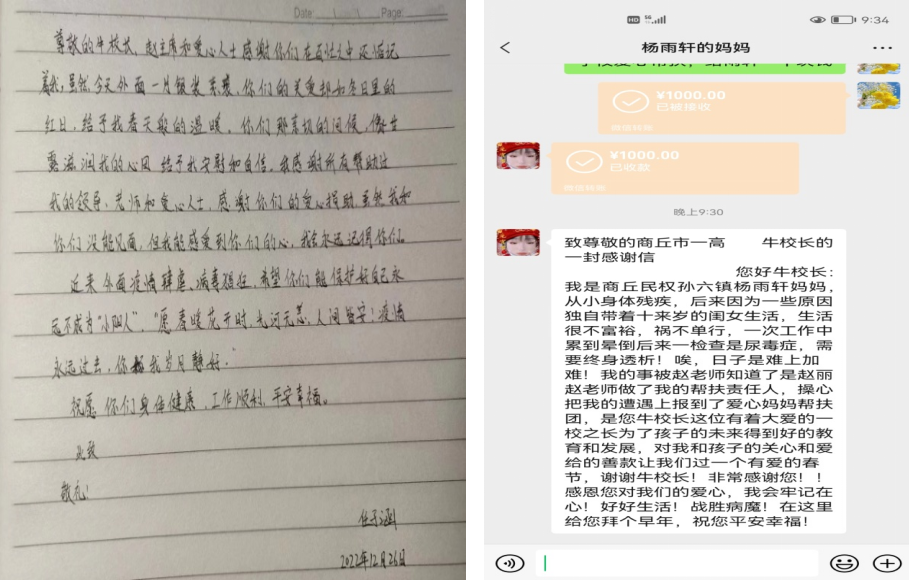 Date: Page:
尊敬的牛校长、赵主席和爱心人士感谢你们在百忙之中还惦记
着我,虽然今天外面一片银装素裹,你们的关爱却如冬日里的
红日,给予我春天般的温暖。你们那亲切的问候,像甘
露滋润我的心田 给予我安慰和自信。我感谢所有帮助过
我的领导、老师和爱心人士,感谢你们的爱心捐助,虽然我和
你们没能见面,但我能感受到你们的心,我会永远记得你们。
近来外面疫情肆虐、病毒猖狂,希望你们能保护好自己永
远不成为“小阳人”、“愿春暖花开时,九河无恙,人间皆安!疫情
永远过去,你我岁月静好。”
祝愿你们身体健康、工作顺利、平安幸福。
此致
敬礼!
任子涵
2022年12月26日
HD 5G 9:34
杨雨轩的妈妈
¥1000.00
已被接收
微信转账
¥1000.00
已收款
微信转账
晚上9:30
致尊敬的商丘市一高 牛校长的
一封感谢信
您好牛校长:
我是商丘民权孙六镇杨雨轩妈妈,
从小身体残疾,后来因为一些原因
独自带着十来岁的闺女生活,生活
很不富裕,祸不单行,一次工作中
累到晕倒后来一检查是尿毒症,需
要终身透析!唉,日子是难上加
难!我的事被赵老师知道了是赵丽
赵老师做了我的帮扶责任人,操心
把我的遭遇上报到了爱心妈妈帮扶
团,是您牛校长这位有着大爱的一
校之长为了孩子的未来得到好的教育
和发展,对我和孩子的关心和爱
给的善款让我们过一个有爱的春
节,谢谢牛校长!非常感谢您!!
感恩您对我们的爱心,我会牢记在
心!好好生活!战胜病魔!在这里
给您拜个早年,祝您平安幸福!